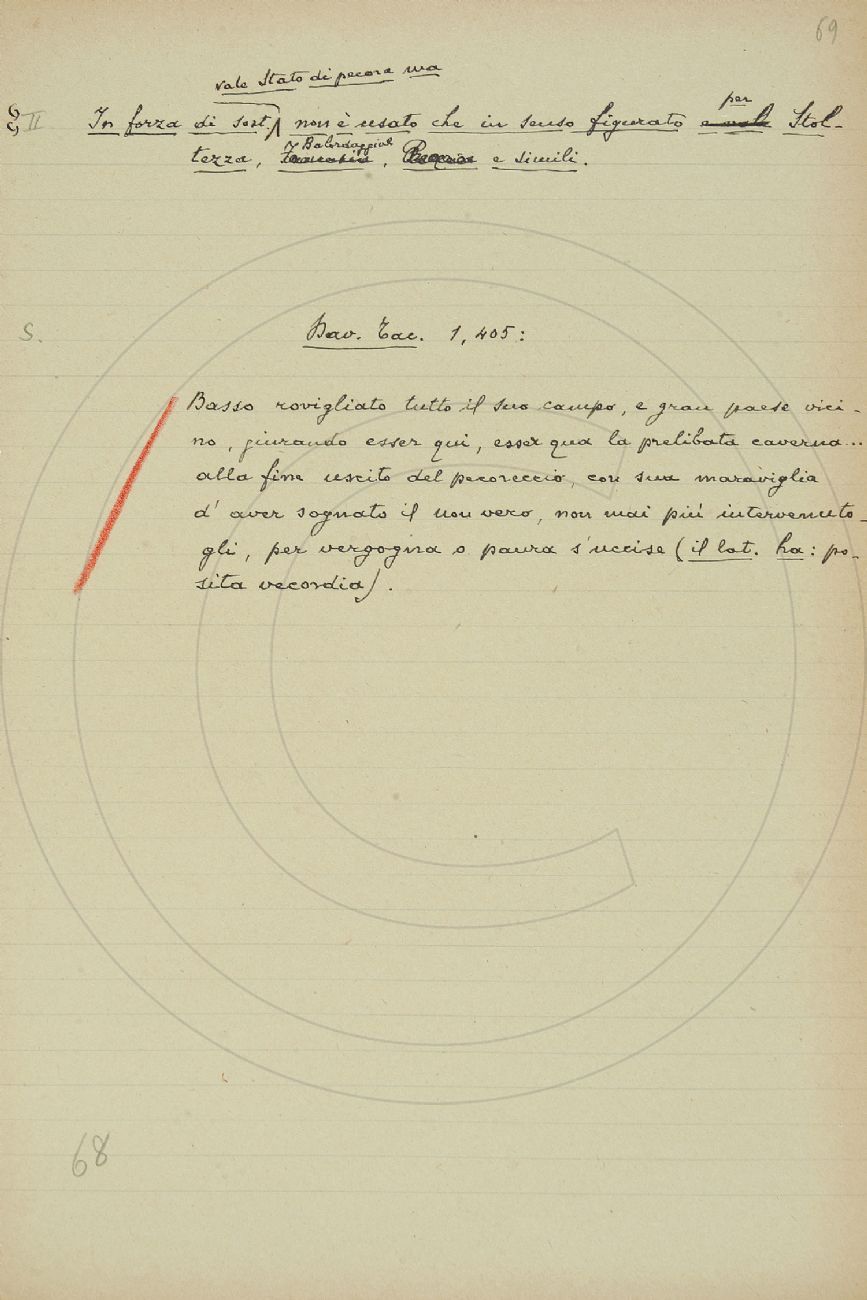 69
vale Stato di pecora ma
§ II In forza di sost. non è usato che in senso figurato per Stol-
tezza, Balordaggine, e simili.
S. Dav. Tac. 1, 405:
Basso rovigliato tutto il suo campo, e gran paese vici-
no, giurando esser qui, esser qua la prelibata caverna...
alla fine uscito del pecoreccio, con sua maraviglia
d' aver sognato il non vero, non mai più intervenuto-
gli, per vergogna o paura s'uccise (il lat. ha: po-
sita vecordia).
68